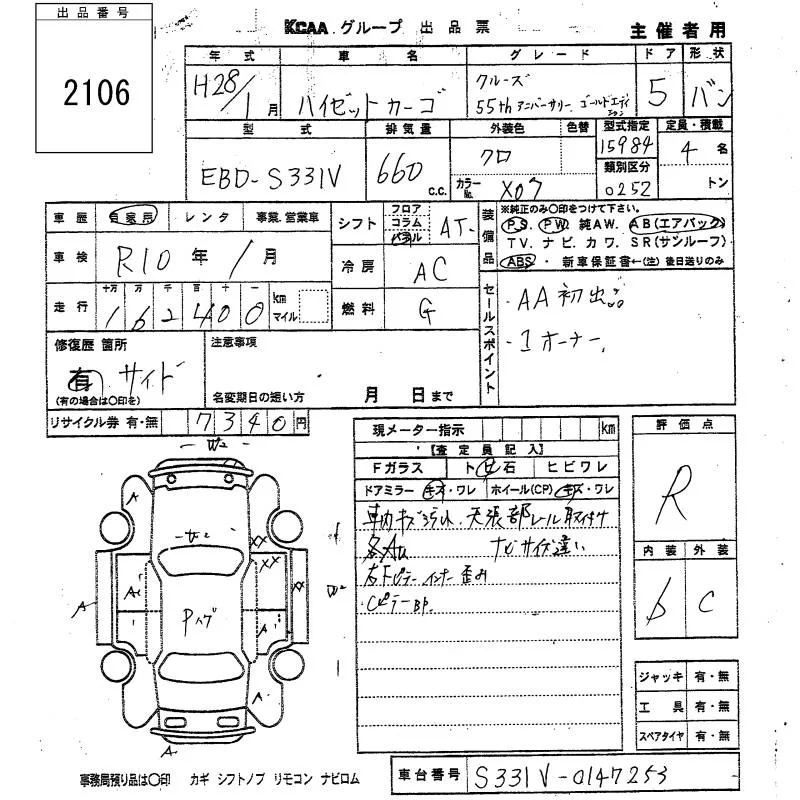 出品番号
2106
KCAA グループ 出品票
主催者用
年式 車名 グレード ドア 形状
H28/1月 ハイゼットカーゴ クルーズ 5 バン
55th アニバーサリー ゴールドエディション
型式 排気量 外装色 色替 型式指定 定員・積載
EBD-S331V 660 c.c. クロ 15984 4名
カラーNo. X07 類別区分 0252 トン
車歴 自家用 レンタ 事業.営業車
シフト フロア コラム パネル AT
装備品 ※純正のみ○印をつけて下さい。
PS. PW. 純AW. AB(エアバック)
TV. ナビ. カワ. SR(サンルーフ)
ABS・ 新車保証書←(注) 後日送りのみ
車検 R10年/1月
冷房 AC
走行 十万 万 千 百 十 一
162400 km マイル
燃料 G
セールスポイント
・AA初出品
・1オーナー
修復歴 箇所
有 サイド
(有の場合は○印を)
注意事項
名変期日の短い方 月 日まで
リサイクル券 有・無 7340円
現メーター指示 km
【査定員記入】
Fガラス トビ石 ヒビワレ
ドアミラー キズ・ワレ ホイール(CP) キズ・ワレ
車内キズ汚れ. 天張部レール取付け
各AU ナビサイズ違い
右Bピラーインナー歪み
CピラーBP.
評価点
R
内装 外装
b C
W2
A
W2
XX
XX
A
A
Pハゲ
A
W2
A
A
A
ジャッキ 有・無
工具 有・無
スペアタイヤ 有・無
事務局預り品は○印 カギ シフトノブ リモコン ナビロム
車台番号 S331V-0147253